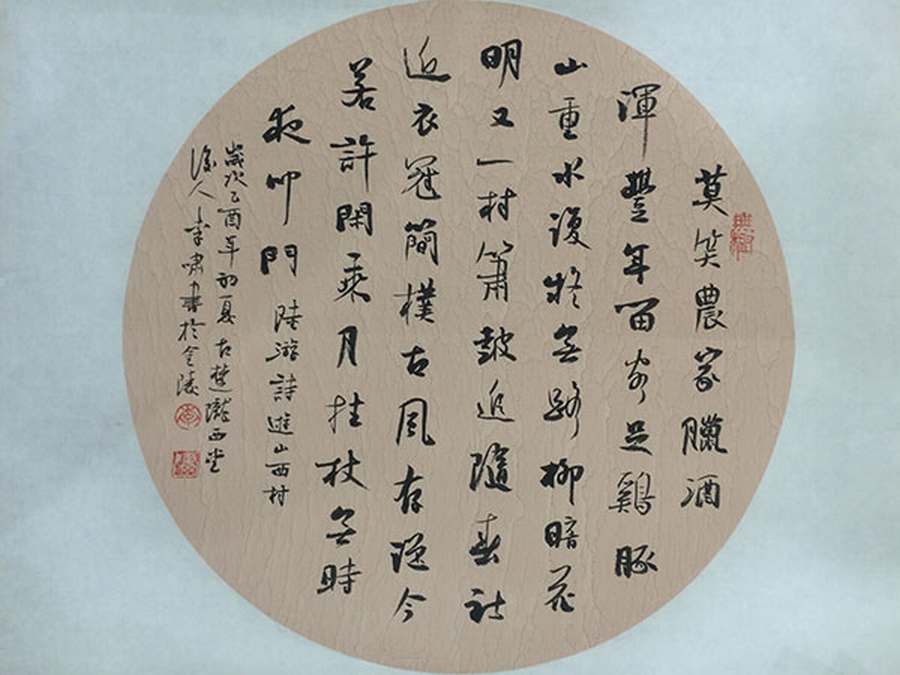 莫笑農家臘酒
渾豐年留客足鷄豚
山重水複疑無路柳暗花
明又一村簫鼓追隨春社
近衣冠簡樸古風存從今
若許閑乘月拄杖無時
夜叩門 陸游詩遊山西村
歲次乙酉年初夏古楚隴西堂
後人李嘯書於金陵